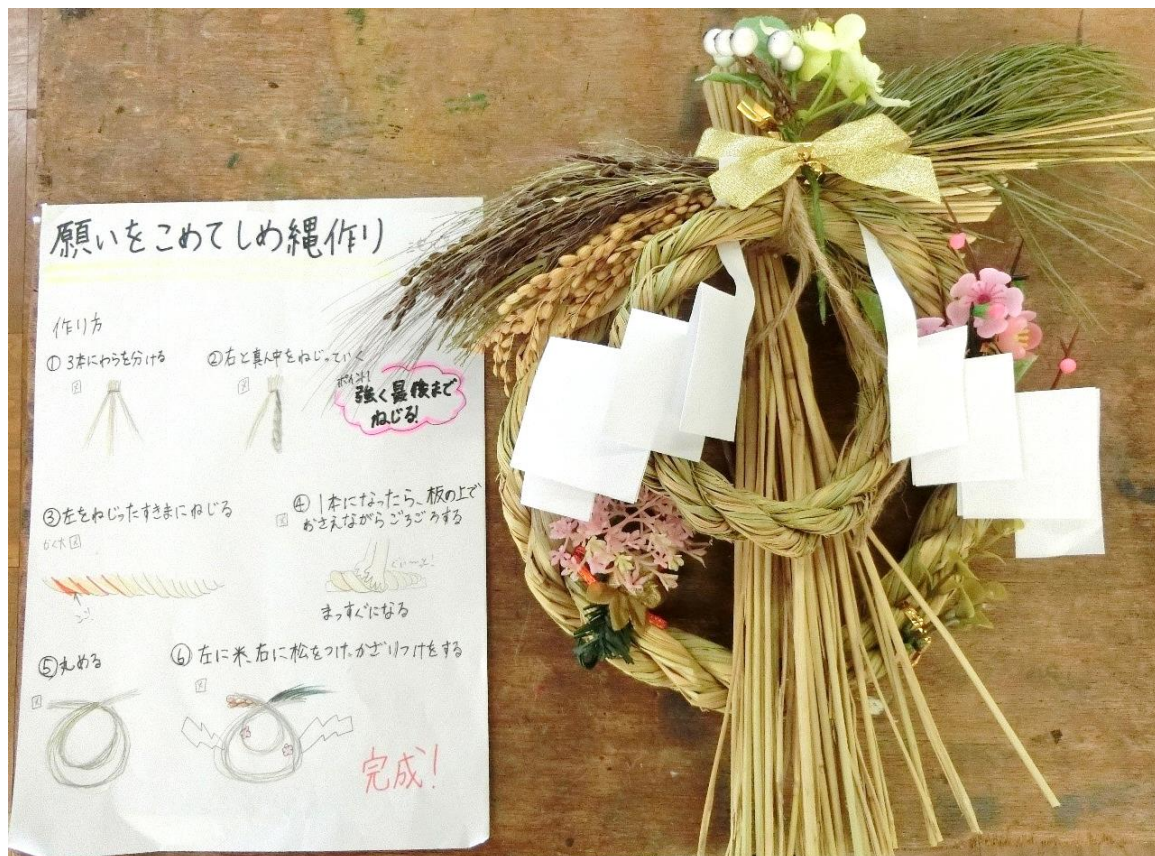 願いをこめてしめ縄作り
作り方
① 3本にわらを分ける
図
② 右と真ん中をねじっていく
図
ポイント!
強く最後まで
ねじる!
③ 左をねじったすきまにねじる
かく大図
④ 1本になったら、板の上で
おさえながらごろごろする
図
ココ!
ぐいーっと!
まっすぐになる
⑤ 丸める
図
⑥ 左に米、右に松をつけ、かざりつけをする
図
完成!